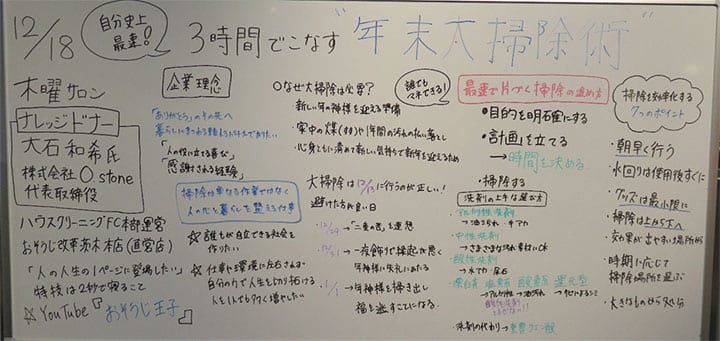 12/18
自分史上最速!
3時間でこなす
"年末大掃除術"
木曜サロン
ナレッジドナー
大石和希氏
株式会社O stone
代表取締役
ハウスクリーニングFC本部運営
おそうじ改革茨木本店(直営店)
「人の人生の1ページに登場したい」
特技は2秒で寝ること
☆YouTube『おそうじ王子』
企業理念
「ありがとう」のその先へ
「人の役に立てる喜び」
「感謝される経験」
掃除は単なる作業ではなく
人の心と暮らしを整える仕事
☆誰もが自立できる社会を
作りたい
☆仕事で環境に左右されず
自分の力で人生を切り拓ける
人を1人でも多く増やしたい
○なぜ大掃除は必要?
新しい年の神様を迎える準備
・家中の煤(すす)や1年間の汚れの払い落とし
・心身ともに清めて新しい気持ちで新年を迎えるため
誰でもマネできる!
大掃除は12/13に行うのが正しい!
避けた方が良い日
・12/29→「二重の苦」を連想
・12/31→一夜飾りで縁起が悪く
年神様に失礼にあたる
・1/1→年神様を掃き出し
福を逃すことになる
最速で片づく掃除の進め方
●目的を明確にする
・計画を立てる
→時間を決める
・掃除する
洗剤の上手な選び方
・アルカリ性洗剤
→油汚れ・手アカ
・中性洗剤
→さまざまな汚れ 素材にOK
・酸性洗剤
→水アカ・尿石
・漂白剤 塩素系 酸素系 還元型
掃除を効率化する
7つのポイント
・朝早く行う
・水回りは使用後すぐに
・グッズは最小限に
・掃除は上から下へ
・効果が出やすい場所から
・時期に応じて
掃除場所を選ぶ
・大きなものから処分